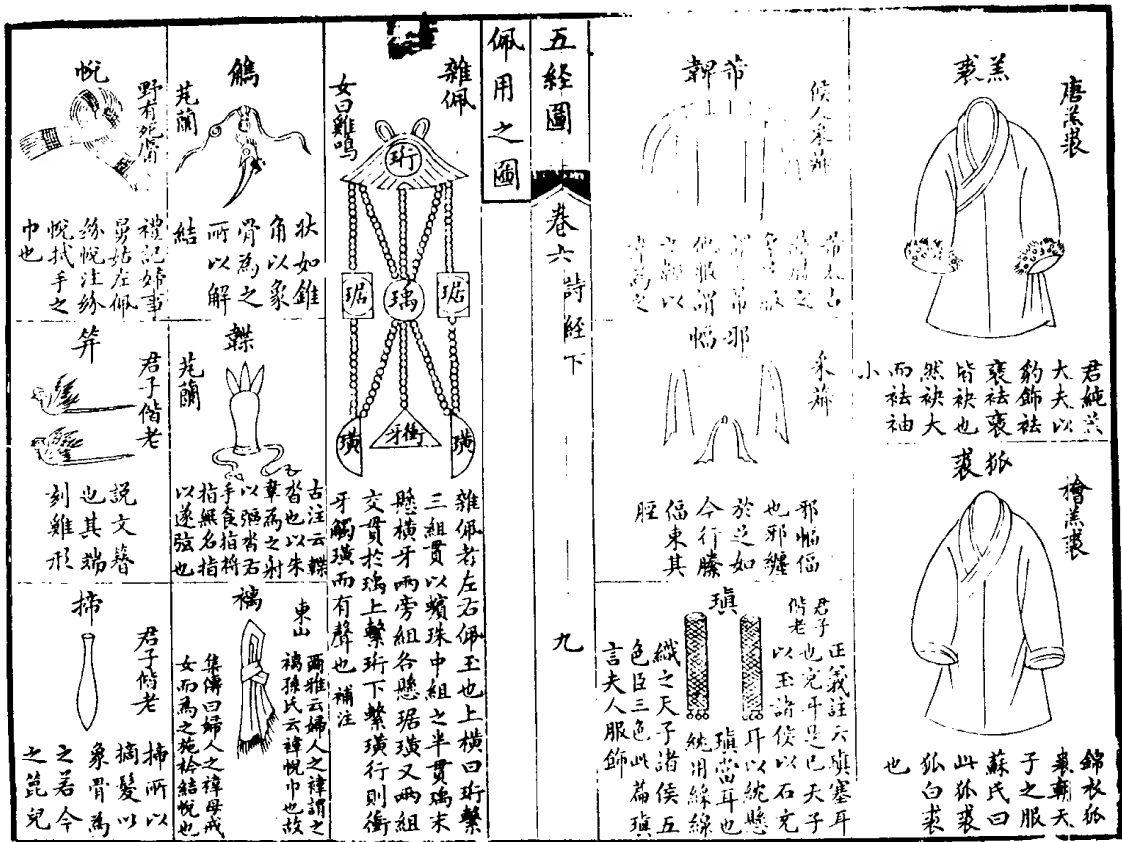 羔裘
唐羔裘
君純羔
大夫以
豹飾袪
裘袪褎
皆袂也
然袂大
而袪袖
小
狐裘
檜羔裘
錦衣狐
裘朝天
子之服
蘇氏曰
此狐裘
狐白裘
也
芾韠
候人采菽
芾太古
邪幅
采菽
邪幅偪
也邪纏
於足如
今行縢
偪束其
脛
瑱
君子偕老
正義註云瑱塞耳
也充耳是已天子
以玉諸侯以石充
耳以統懸
瑱當耳也
統用線線
織之天子諸侯五
色臣三色此篇瑱
言夫人服飾
五經圖
卷六
詩經下
九
佩用之圖
雜佩
女曰雞鳴
珩
琚
瑀
琚
璜
衝牙
璜
雜佩者左右佩玉也上橫曰珩繫
三組貫以蠙珠中組之半貫瑀末
懸橫牙兩旁組各懸琚璜又兩組
交貫於瑀上繫珩下繫璜行則衝
牙觸璜而有聲也 補注
觿
芄蘭
狀如錐
角以象
骨為之
所以解
結
韘
芄蘭
古注云韘
沓也以朱
韋為之射
以彄沓右
手食指將
指無名指
以遂弦也
褵
東山
爾雅云婦人之褘謂之
褵孫氏云褘帨巾也故
集傳曰婦人之褘母戒
女而為之施衿結帨也
帨
野有死麕
禮記婦事
舅姑左佩
紛帨注紛
帨拭手之
巾也
笄
君子偕老
說文簪
也其端
刻雞形
揥
君子偕老
揥所以
摘髮以
象骨為
之若今
之篦兒